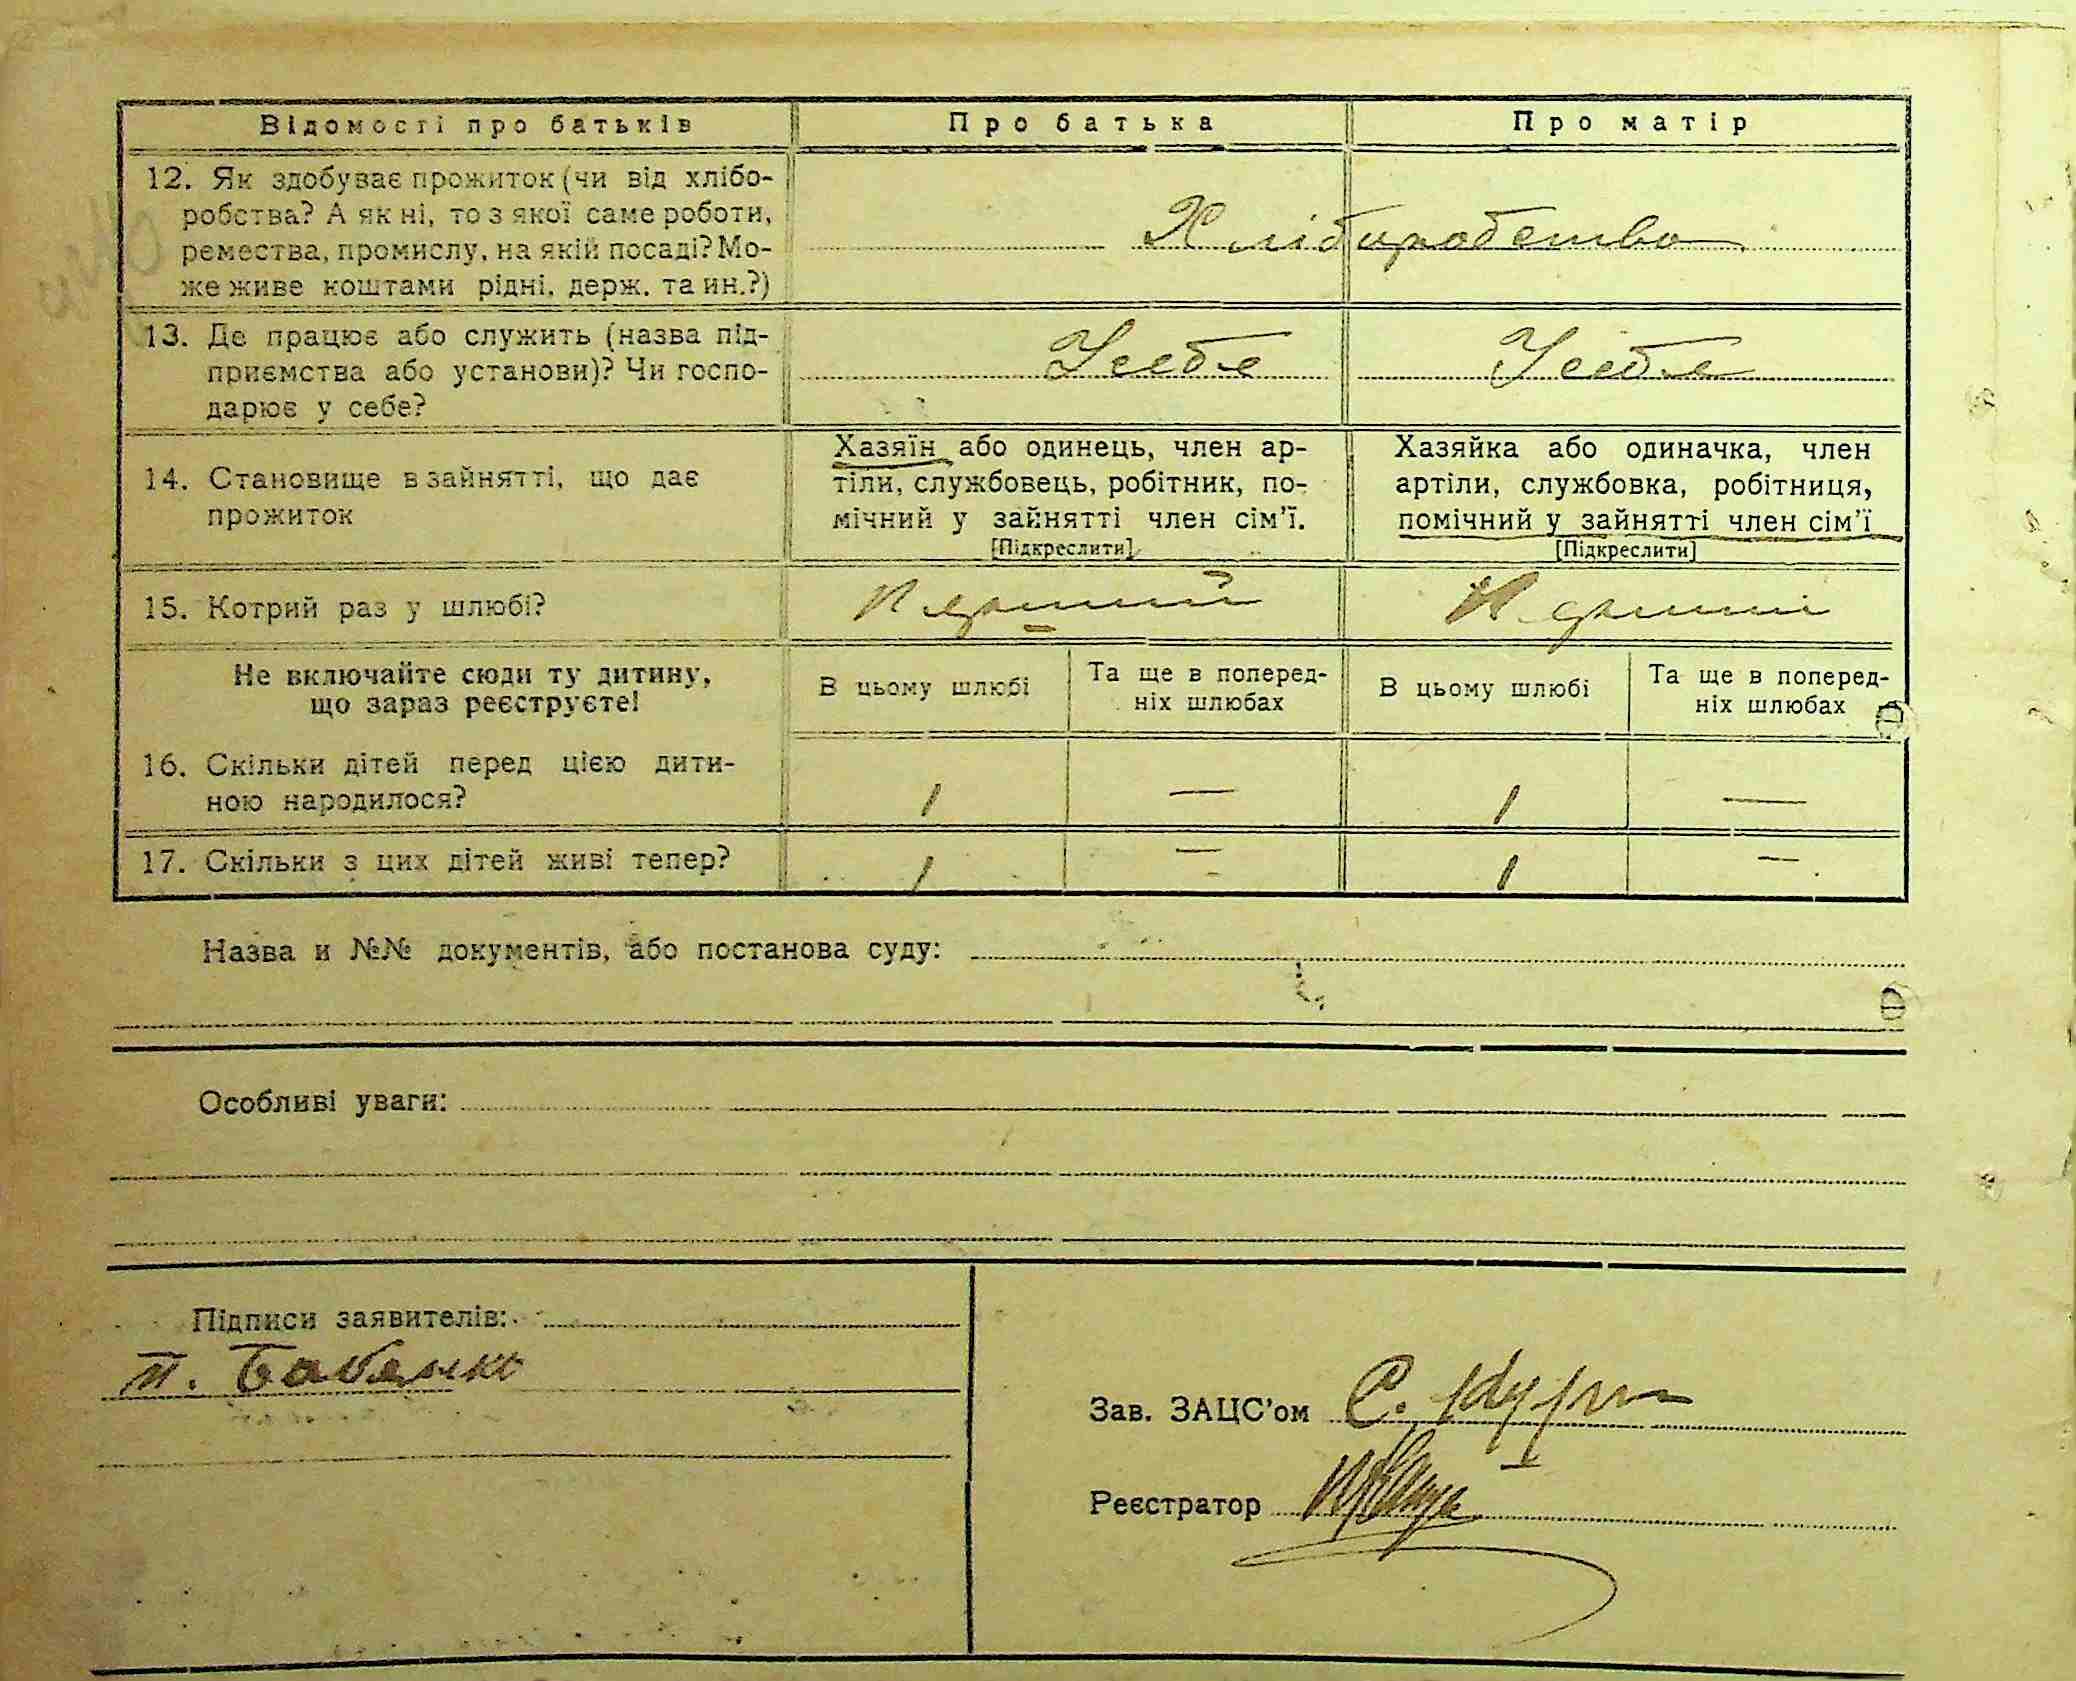 Відомості про батьків Про батька Про матір
12. Як здобуває прожиток (чи від хлібо-
робства? А як ні, то з якої саме роботи,
ремества, промислу, на якій посаді? Мо-
же живе коштами рідні, держ. та ин.?)
Хлібиробство
13. Де працює або служить (назва під-
приємства або установи)? Чи госпо-
дарює у себе?
Усебе Усебе
14. Становище в зайнятті, що дає
прожиток
Хазяїн або одинець, член ар-
тіли, службовець, робітник, по-
мічний у зайнятті член сім'ї.
[Підкреслити]
Хазяйка або одиначка, член
артіли, службовка, робітниця,
помічний у зайнятті член сім'ї
[Підкреслити]
15. Котрий раз у шлюбі?
Не включайте сюди ту дитину,
що зараз реєструєте!
В цьому шлюбі
Та ще в поперед-
ніх шлюбах
В цьому шлюбі
Та ще в поперед-
ніх шлюбах
16. Скільки дітей перед цією дити-
ною народилося?
1 — 1 —
17. Скільки з цих дітей живі тепер?
1 — 1 —
Назва и №№ документів, або постанова суду:
Особливі уваги:
Підписи заявителів:
П. Бабенко
Зав. ЗАЦС'ом С.
Реєстратор